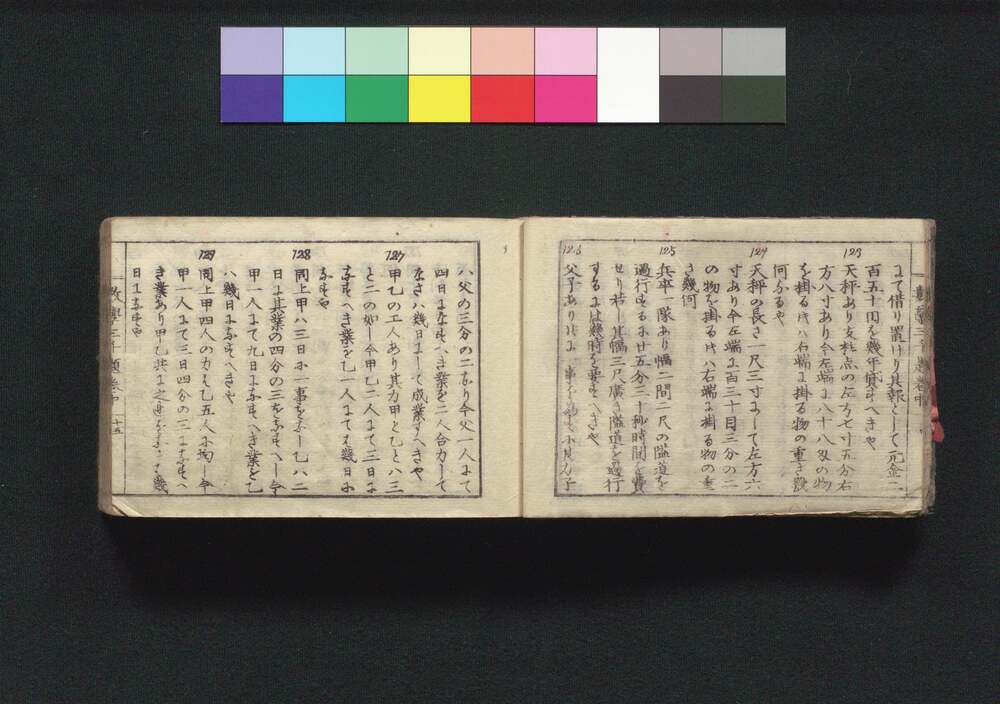 にて借り置けり其報として元金二
百五十円を幾年貸すへきや
123
天秤あり支柱点の左方七寸五分右
方八寸あり今左端に八十八匁の物
を掛る时ハ右端に掛る物の重さ
何ふるや
124
天秤の長さ一尺三寸にして左方六
寸あり今左端に百三十目三分の二
の物を掛る时ハ右端に掛る物の重
さ幾何
125
兵卒一隊あり幅二間一尺の隘道を
過行するに廿五分二十秒時間を費
せり若し其幅三尺廣き隘道を過行
するには幾時を要すへきや
126
父子あり
ハ父の三分の二なり今父一人にて
四日になすへき業を二人合力して
なさハ幾日にして成業すへきや
127
甲乙の工人あり其力甲と乙とハ三
と二の如し今甲乙二人にて三日に
なすへき業を乙一人にてハ幾日に
なすや
128
同上甲ハ三日に一事をなし乙ハ二
日に其業の四分の三をなすへし今
甲一人にて九日になすへき業を乙
ハ幾日になすへきや
129
同上甲四人の力は乙五人に均し今
甲一人にて三日四分の三になすへ
き業あり甲乙共に之を なさは幾
日になすや
數學三千題卷中
十五